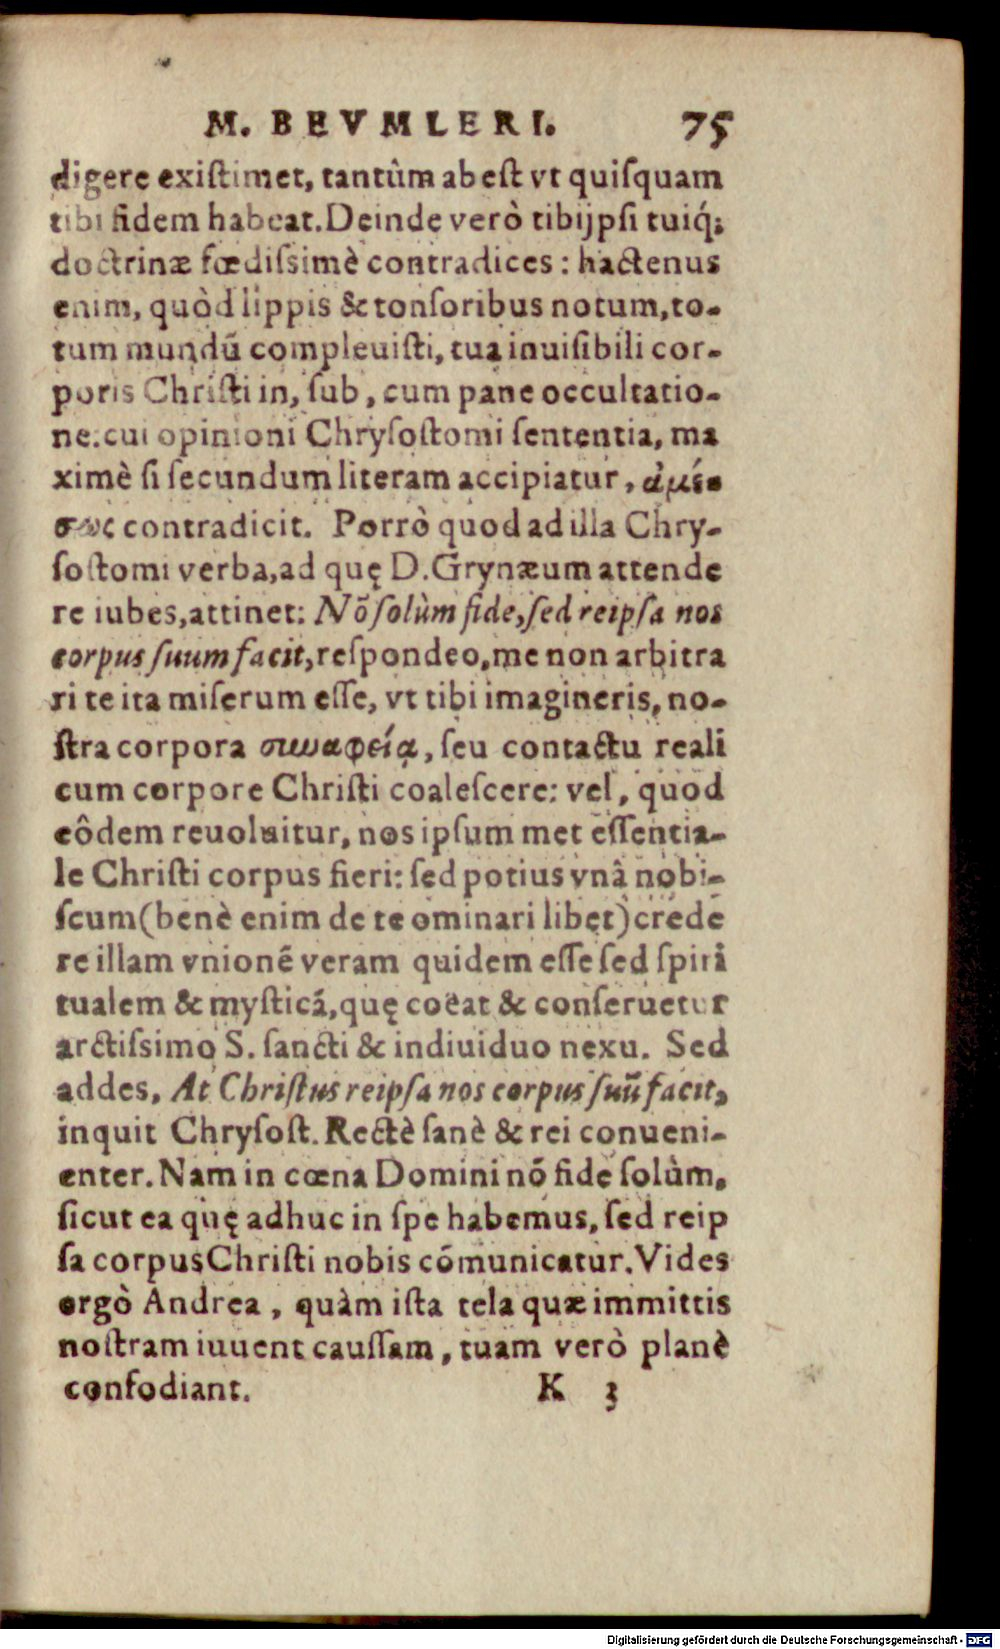 M. BEVMLERI. 75
digere existimet, tantùm abest vt quisquam
tibi fidem habeat. Deinde verò tibijpsi tuiq́;
doctrinæ fœdissimè contradices: hactenus
enim, quòd lippis & tonsoribus notum, to-
tum mundũ compleuisti, tua inuisibili cor-
poris Christi in, sub, cum pane occultatio-
ne: cui opinioni Chrysostomi sententia, ma
ximè si secundum literam accipiatur, ἀμέ-
σως contradicit. Porrò quod ad illa Chry-
sostomi verba, ad quę D. Grynæum attende
re iubes, attinet: Nõ solùm fide, sed reipsa nos
corpus suum facit, respondeo, me non arbitra
ri te ita miserum esse, vt tibi imagineris, no-
stra corpora συναφείᾳ, seu contactu reali
cum corpore Christi coalescere: vel, quod
eôdem reuoluitur, nos ipsum met essentia-
le Christi corpus fieri: sed potius vnâ nobi-
scum (benè enim de te ominari libet) crede
re illam vnionẽ veram quidem esse sed spiri
tualem & mysticã, quę coëat & conseruetur
arctissimo S. sancti & indiuiduo nexu. Sed
addes, At Christus reipsa nos corpus suũ facit,
inquit Chrysost. Rectè sanè & rei conueni-
enter. Nam in cœna Domini nõ fide solùm,
sicut ea quę adhuc in spe habemus, sed reip
sa corpus Christi nobis cõmunicatur. Vides
ergò Andrea, quàm ista tela quæ immittis
nostram iuuent caussam, tuam verò planè
confodiant. K 3
Digitalisierung gefördert durch die Deutsche Forschungsgemeinschaft - DFG